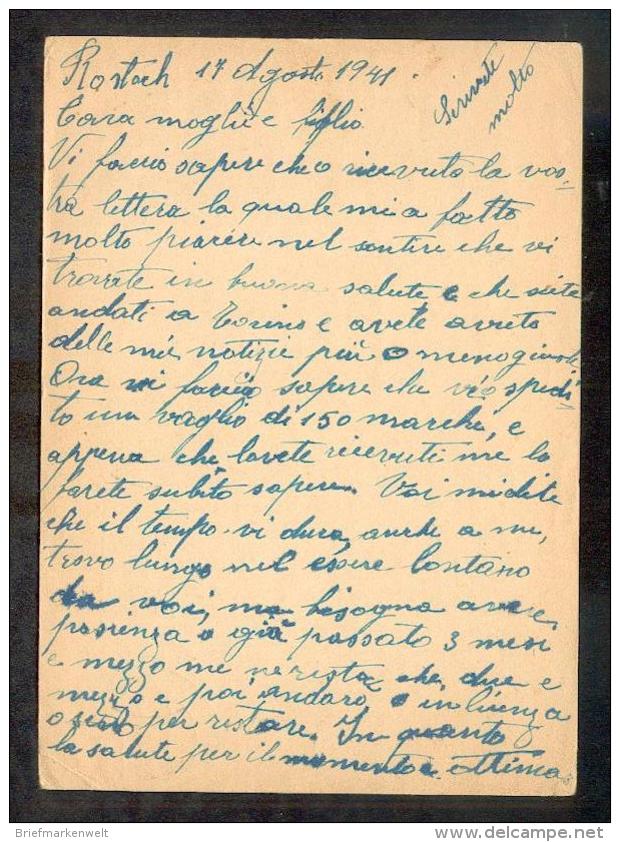 Rostoch 17 Agosto 1941.
Scrivete
molto
Cara moglie e figlio.
Vi faccio sapere che o ricevuto la vos-
tra lettera la quale mi a fatto
molto piacere nel sentire che vi
trovate in buona salute e che siete
andati a Torino e avete avuto
delle mie notizie più o meno
Ora vi faccio sapere che vi o spedi-
to un vaglio di 150 marchi, e
appena che lavete ricevuti me lo
farete subito sapere. Voi mi dite
che il tempo vi dura, anche a me,
trovo lungo nel essere lontano
da voi, ma bisogna avere
pasienza o già passato 3 mesi
e mezzo me ne resta che due e
mezzo e poi andaro o in licenza
o per restare. In quanto
la salute per il momento e ottima
Briefmarkenwelt
www.delcampe.net